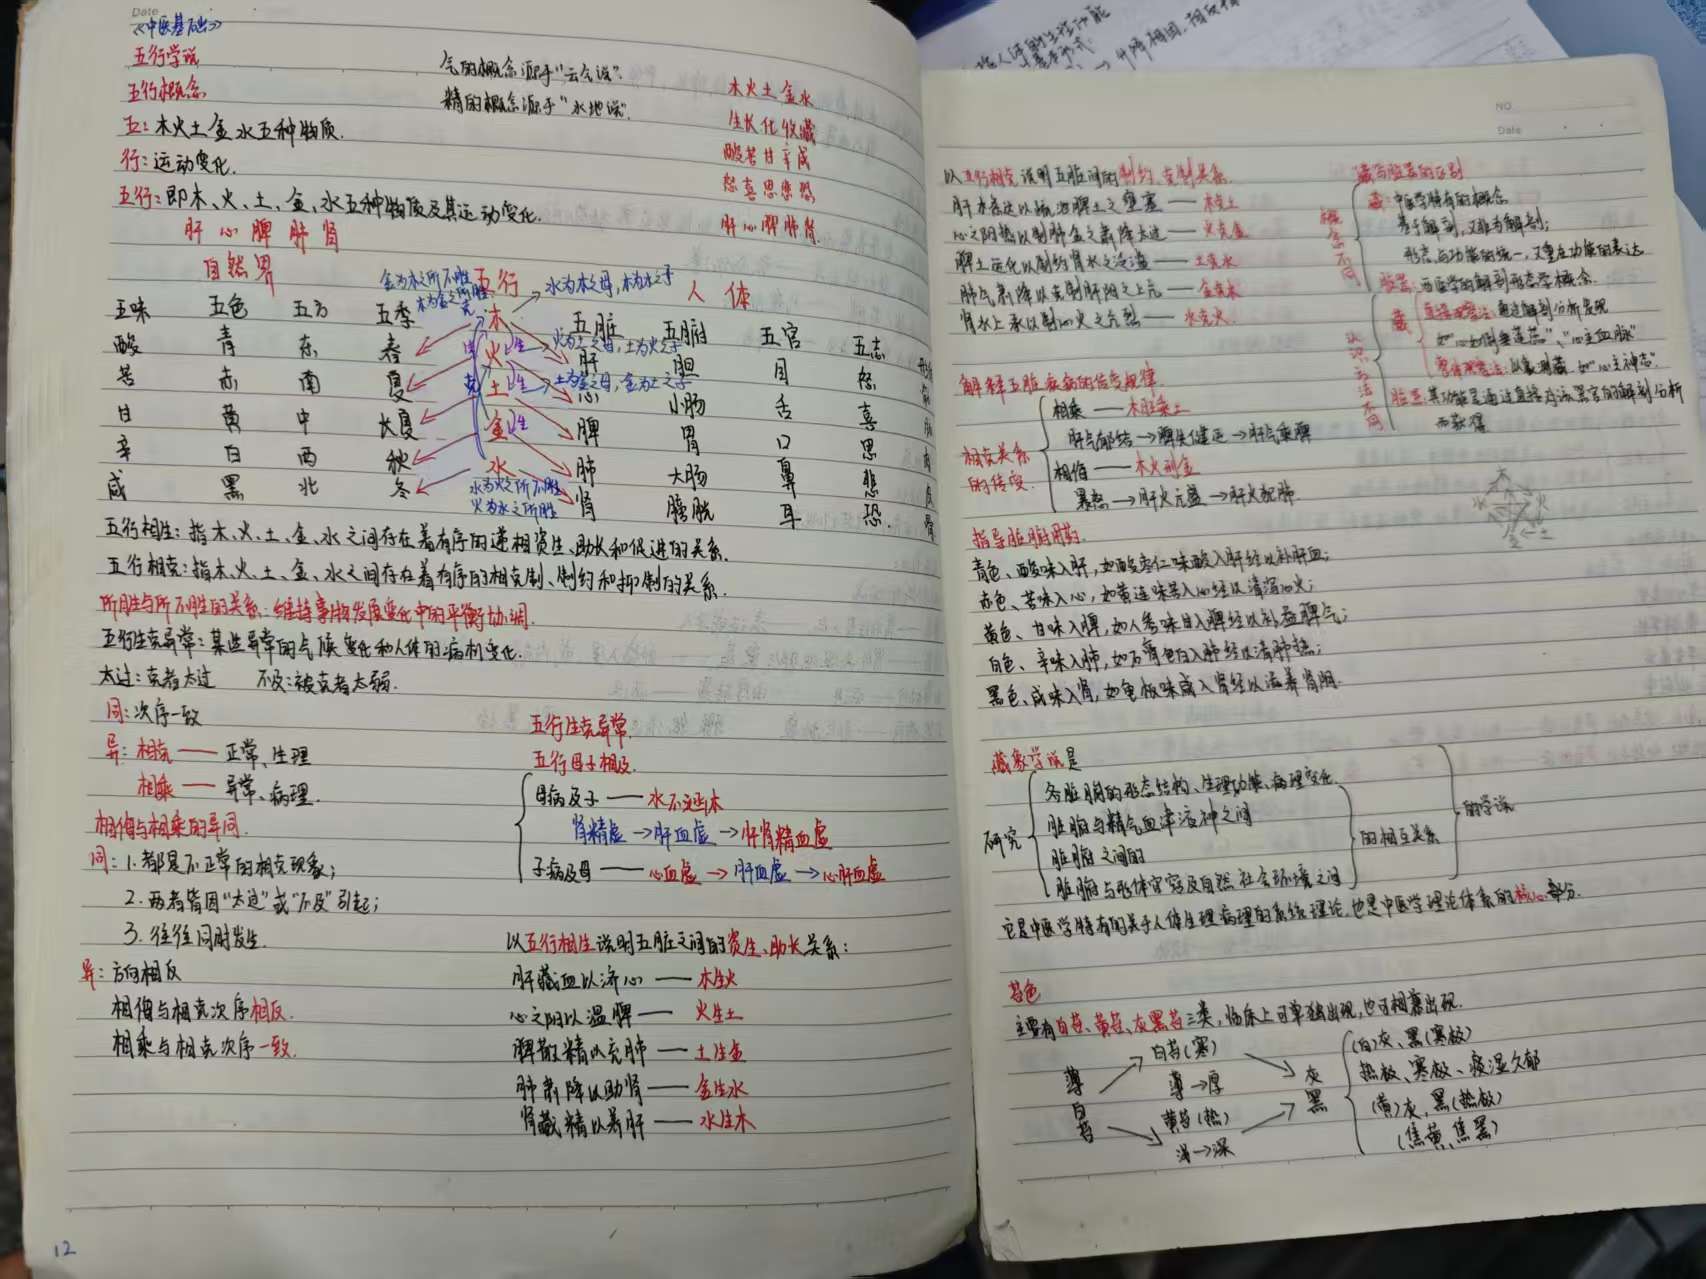 Date
《中医基础》
五行学说
气的概念源于"云气说".
五行概念
精的概念源于"水地说".
五:木火土金水五种物质.
行:运动变化.
五行:即木、火、土、金、水五种物质及其运动变化.
肝 心 脾 肺 肾
木火土金水
生长化收藏
酸苦甘辛咸
怒喜思悲恐
肝心脾肺肾.
自然界 五行 人体
金为木之所不胜
木为金之所胜
水为木之母,木为水之子
五味 五色 五方 五季 木 五脏 五腑 五官 五志
酸 青 东 春 火 肝 胆 目 怒
火为土之母,土为火之子
苦 赤 南 夏 土 心 小肠 舌 喜
土为金之母,金为土之子
甘 黄 中 长夏 金 脾 胃 口 思
辛 白 西 秋 水 肺 大肠 鼻 悲
咸 黑 北 冬 肾 膀胱 耳 恐.
水为火之所不胜
火为水之所胜
五行相生:指木、火、土、金、水之间存在着有序的递相资生、助长和促进的关系.
五行相克:指木、火、土、金、水之间存在着有序的相克制、制约和抑制的关系.
所胜与所不胜的关系:维持事物发展变化中的平衡协调.
五行生克异常:某些异常的气候变化和人体的病机变化.
太过:克者太过 不及:被克者太弱.
同:次序一致
异:相克——正常、生理
相乘——异常、病理.
相侮与相乘的异同.
同:1.都是不正常的相克现象;
2.两者皆因"太过"或"不及"引起;
3.往往同时发生.
异:方向相反
相侮与相克次序相反.
相乘与相克次序一致.
五行生克异常.
五行母子相及.
母病及子——水不涵木
肾精虚→肝血虚→肝肾精血虚
子病及母——心血虚→肝血虚→心肝血虚
以五行相生说明五脏之间的资生、助长关系:
肝藏血以济心——木生火
心之阳以温脾——火生土
脾散精以充肺——土生金
肺肃降以助肾——金生水
肾藏精以养肝——水生木
12
NO
Date
以五行相克说明五脏间的制约、克制关系.
肝木条达以疏泄脾土之壅塞——木克土
心之阳热以制肺金之肃降太过——火克金
脾土运化以制约肾水之泛滥——土克水
肺气肃降以克制肝阳之上亢——金克木
肾水上承以制心火之亢烈——水克火.
解释五脏疾病的传变规律.
相克关系的传变.
相乘——木旺乘土
肝气郁结→脾失健运→肝气乘脾
相侮——木火刑金
暴怒→肝火亢盛→肝火犯肺
藏与脏器的区别
概念不同
藏:中医学特有的概念
基于解剖,又难为解剖;
形态与功能的统一,又重在功能的表达
脏器:西医学的解剖形态学概念.
认识方法不同
藏
直接观察法:通过解剖分析发现
如"心如倒垂莲蕊"、"心主血脉"
整体观察法:以象测藏,如"心主神志".
脏器:其功能是通过直接对该器官的解剖分析
而获得
木
水 火
金 土
指导脏腑用药.
青色、酸味入肝,如酸枣仁味酸入肝经以补肝血;
赤色、苦味入心,如黄连味苦入心经以清泻心火;
黄色、甘味入脾,如人参味甘入脾经以补益脾气;
白色、辛味入肺,如石膏色白入肺经以清肺热;
黑色、咸味入肾,如龟板味咸入肾经以滋养肾阴.
藏象学说是
研究
各脏腑的形态结构、生理功能、病理变化
脏腑与精气血津液神之间
脏腑之间的
脏腑与形体官窍及自然社会环境之间
的相互关系
的学说
它是中医学特有的关于人体生理病理的系统理论,也是中医学理论体系的核心部分.
苔色
主要有白苔、黄苔、灰黑苔三类,临床上可单独出现,也可相兼出现.
薄白苔
白苔(寒)
薄→厚
黄苔(热)
浅→深
灰黑
(白)灰、黑(寒极)
热极、寒极、痰湿久郁
(黄)灰、黑(热极)
(焦黄、焦黑)